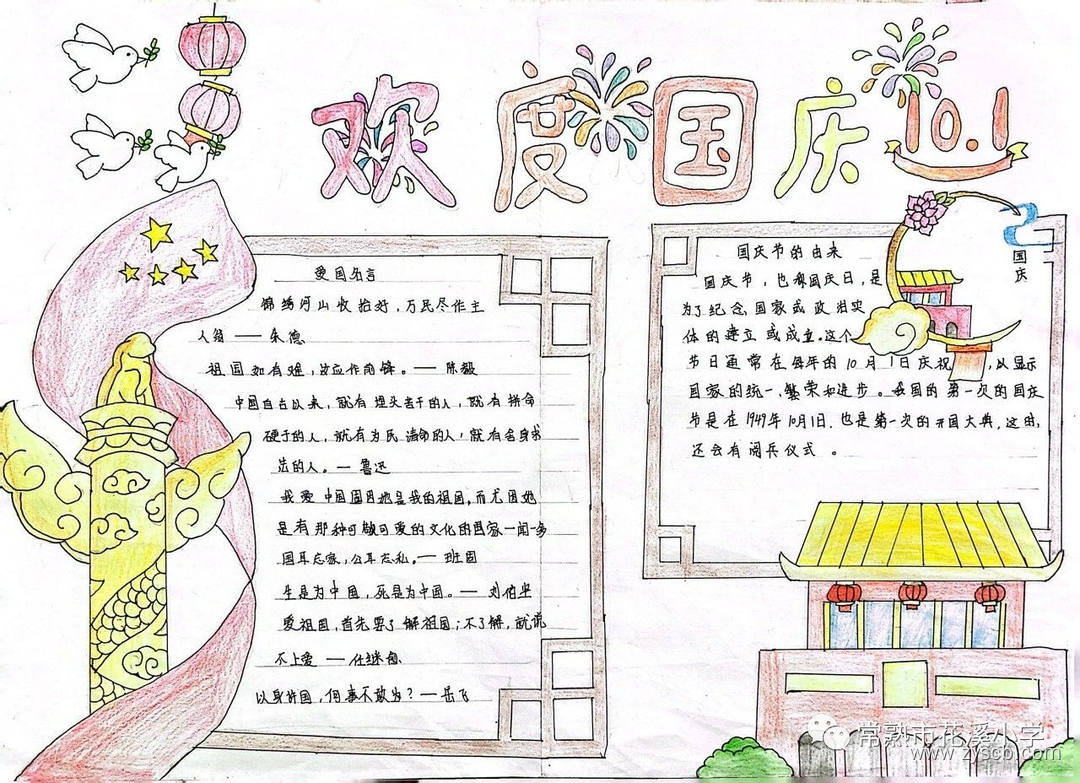 欢度国庆
10.1
爱国名言
锦绣河山收拾好，万民尽作主
人翁 —— 朱德
祖国如有难，汝应作前锋。— 陈毅
中国自古以来，就有埋头苦干的人，就有拼命
硬干的人，就有为民请命的人，就有舍身求
法的人。— 鲁迅
我爱中国固因他是我的祖国，而尤因他
是有那种可敬可爱的文化的国家一闻一多
国耳忘家，公耳忘私。— 班固
生是为中国，死是为中国。— 刘伯坚
爱祖国，首先要了解祖国；不了解，就说
不上爱 —
以身许国，何事不敢为？— 岳飞
国庆节的由来
国庆节，也称国庆日，是
为了纪念国家或政治实
体的建立或成立。这个
节日通常在每年的10月1日庆祝，以显示
国家的统一、繁荣和进步。我国的第一次的国庆
节是在1949年10月1日.也是第一次的开国大典，这由，
还会有阅兵仪式。
国庆
常熟市花溪小学
www.zyscb.com